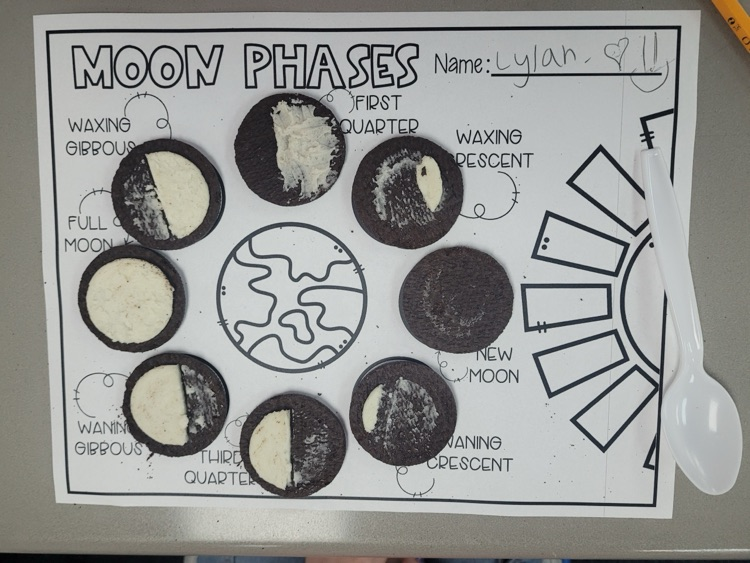 MOON PHASES
Name: Lylah. ♡!!
FIRST
QUARTER
WAXING
GIBBOUS
WAXING
CRESCENT
FULL
MOON
NEW
MOON
WANING
GIBBOUS
THIRD
QUARTER
WANING
CRESCENT